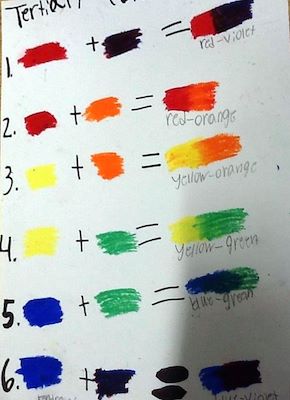 Tertiary
1. + =
red-violet
2. + =
red-orange
3. + =
yellow-orange
4. + =
yellow-green
5. + =
blue-green
6. + =
blue-violet